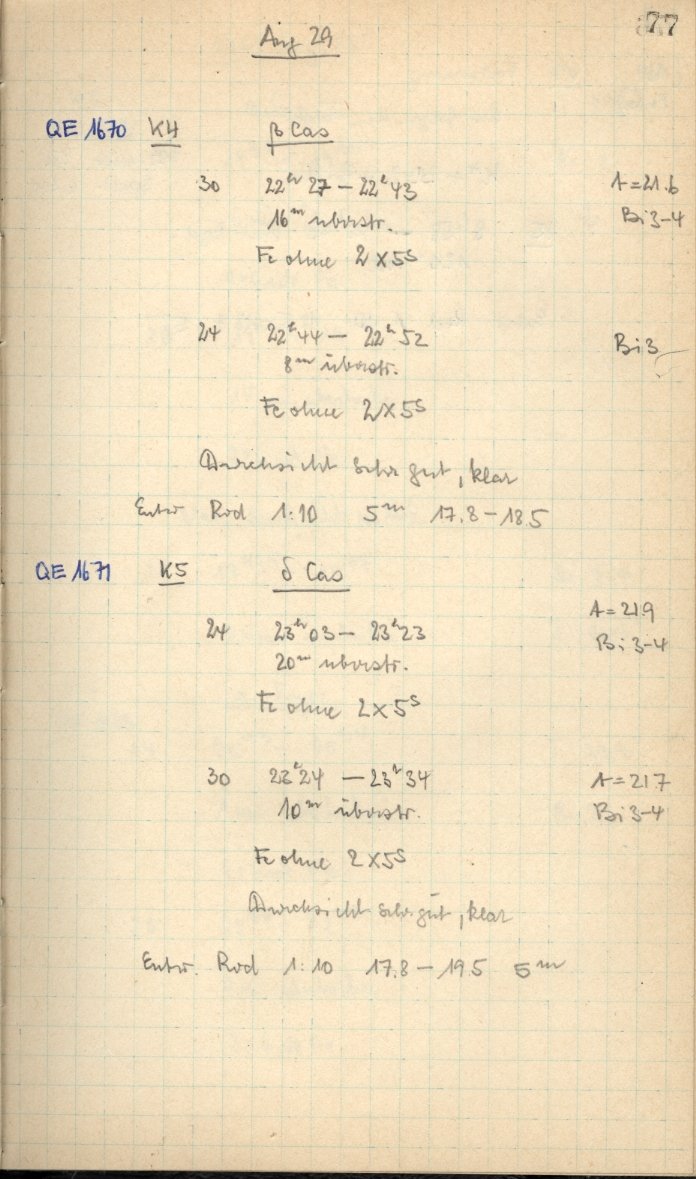 77
Aug 29
QE 1670 K4 β Cas
30 22ʰ 27 – 22ʰ 43 A = 21.6
16ᵐ überstr. Bi 3-4
Fe ohne 2 x 5ˢ
24 22ʰ 44 – 22ʰ 52 Bi 3
8ᵐ überstr.
Fe ohne 2 x 5ˢ
Durchsicht sehr gut, klar
Entw Rod 1:10 5ᵐ 17.8 – 18.5
QE 1671 K5 δ Cas
A = 21.9
24 23ʰ 03 – 23ʰ 23 Bi 3-4
20ᵐ überstr.
Fe ohne 2 x 5ˢ
30 23ʰ 24 – 23ʰ 34 A = 21.7
10ᵐ überstr. Bi 3-4
Fe ohne 2 x 5ˢ
Durchsicht sehr gut, klar
Entw. Rod 1:10 17.8 – 19.5 5ᵐ